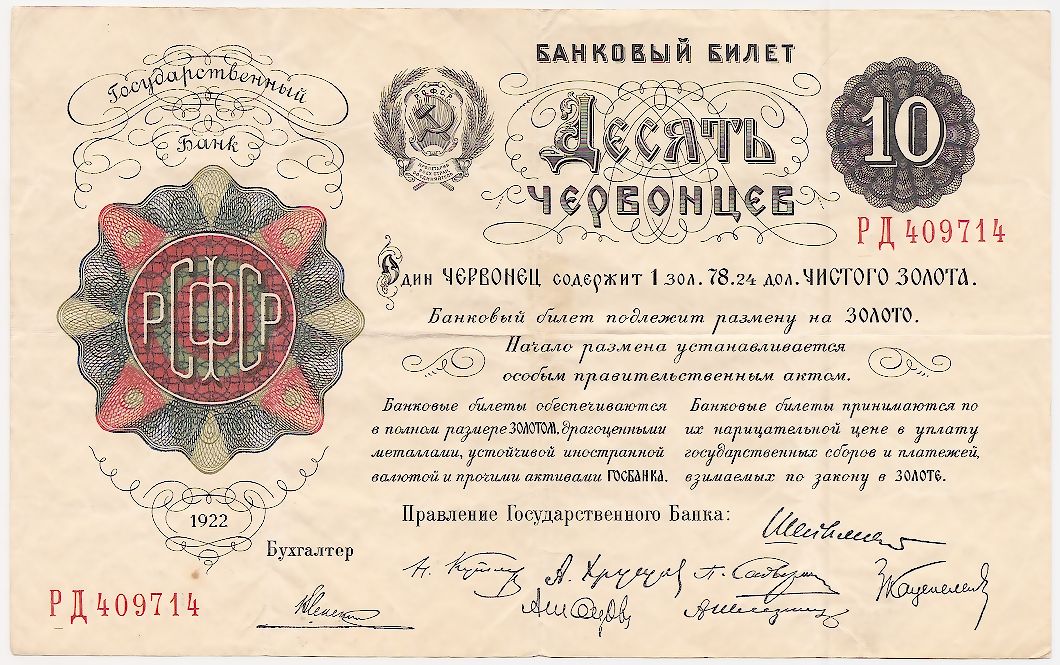 Государственный
Банк
БАНКОВЫЙ БИЛЕТ
ДЕСЯТЬ
ЧЕРВОНЦЕВ
10
РД 409714
РСФСР
Один ЧЕРВОНЕЦ содержит 1 зол. 78.24 дол. ЧИСТОГО ЗОЛОТА.
Банковый билет подлежит размену на ЗОЛОТО.
Начало размена устанавливается
особым правительственным актом.
Банковые билеты обеспечиваются
в полном размере ЗОЛОТОМ, драгоценными
металлами, устойчивой иностранной
валютой и прочими активами ГОСБАНКА.
Банковые билеты принимаются по
их нарицательной цене в уплату
государственных сборов и платежей,
взимаемых по закону в ЗОЛОТЕ.
Правление Государственного Банка:
1922
Бухгалтер
РД 409714